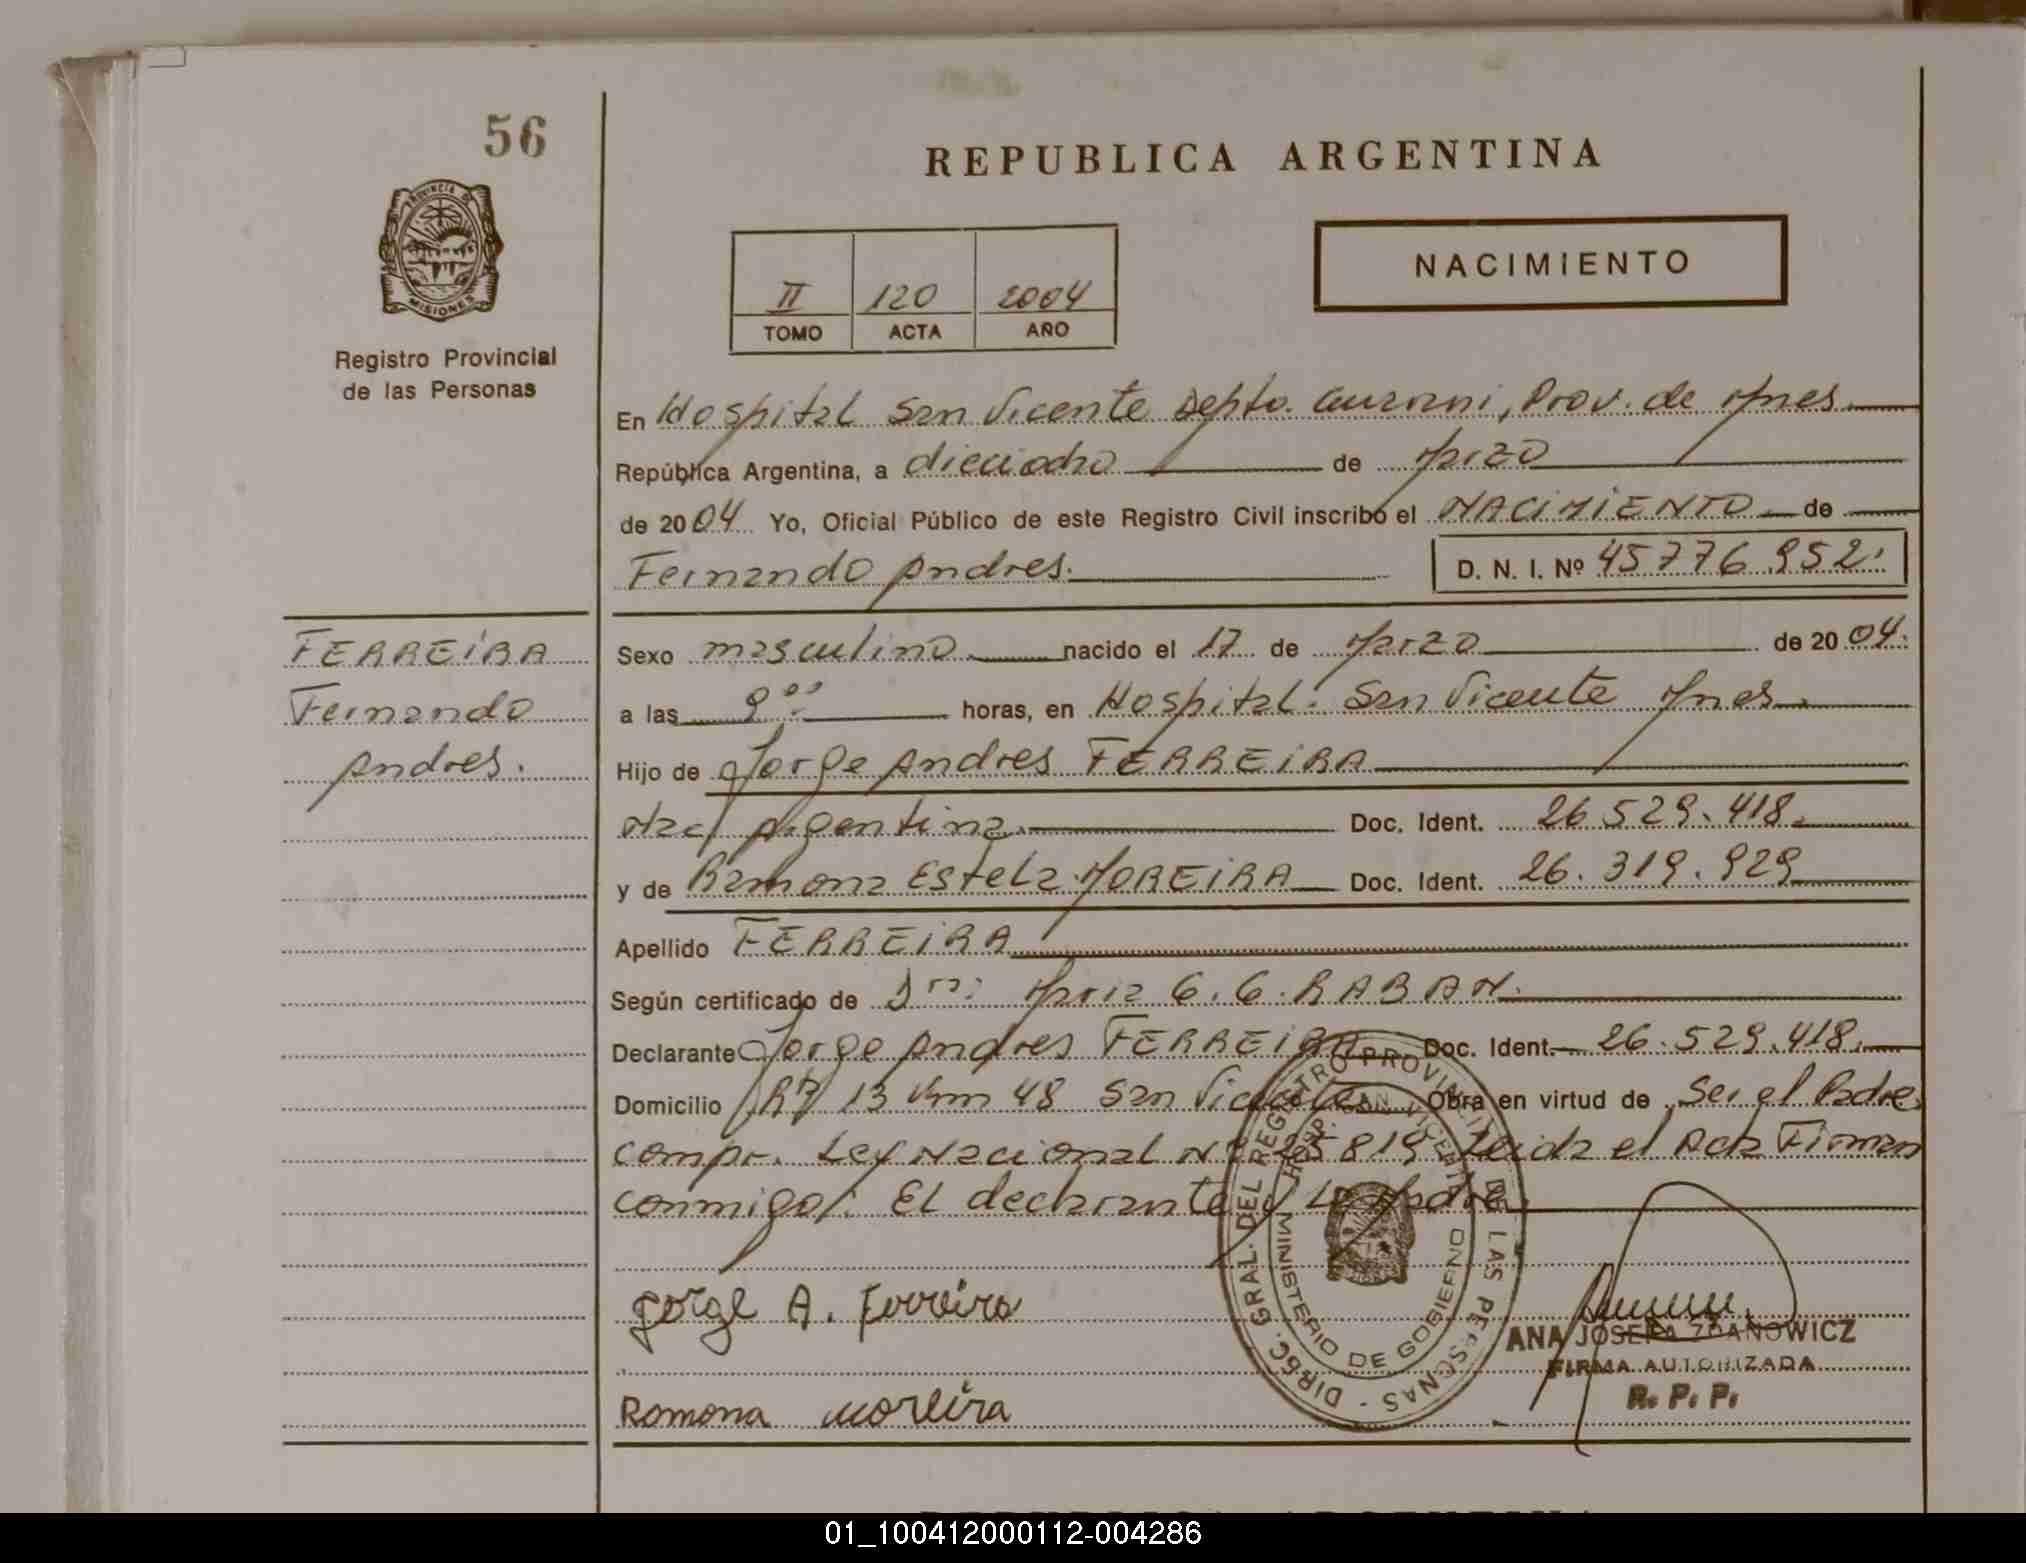 56
REPUBLICA ARGENTINA
PROVINCIA DE
MISIONES
Registro Provincial
de las Personas
NACIMIENTO
II 120 2004
TOMO ACTA AÑO
En Hospital San Vicente Depto. Guarani, Prov. de Mnes.
República Argentina, a dieciocho de Marzo
de 2004 Yo, Oficial Público de este Registro Civil inscribo el NACIMIENTO de
Fernando Andres. D. N. I. Nº 45776952.
FERREIRA
Fernando
Andres.
Sexo masculino nacido el 17 de Marzo de 2004.
a las 9⁰⁰ horas, en Hospital. San Vicente Mnes
Hijo de Jorge Andres FERREIRA
Nac. Argentina Doc. Ident. 26.529.418.
y de Ramona Estela MOREIRA Doc. Ident. 26.319.929
Apellido FERREIRA
Según certificado de Maria G. G. RABAN.
Declarante Jorge Andres FERREIRA Doc. Ident. 26.529.418.
Domicilio 13 Km 48 San Vicente Obra en virtud de Ser el Padre
compr. Ley Nacional Nº 25819 Leida el Acta Firman
conmigo: El declarante y La Madre.
Jorge A. Ferreira
Romona Moreira
DIREC. GRAL. DEL REGISTRO PROVINCIAL DE LAS PERSONAS
HOSP. SAN VICENTE
MINISTERIO DE GOBIERNO
ANA JOSEFA ZDANOWICZ
FIRMA AUTORIZADA
R. P. P.
01_100412000112-004286